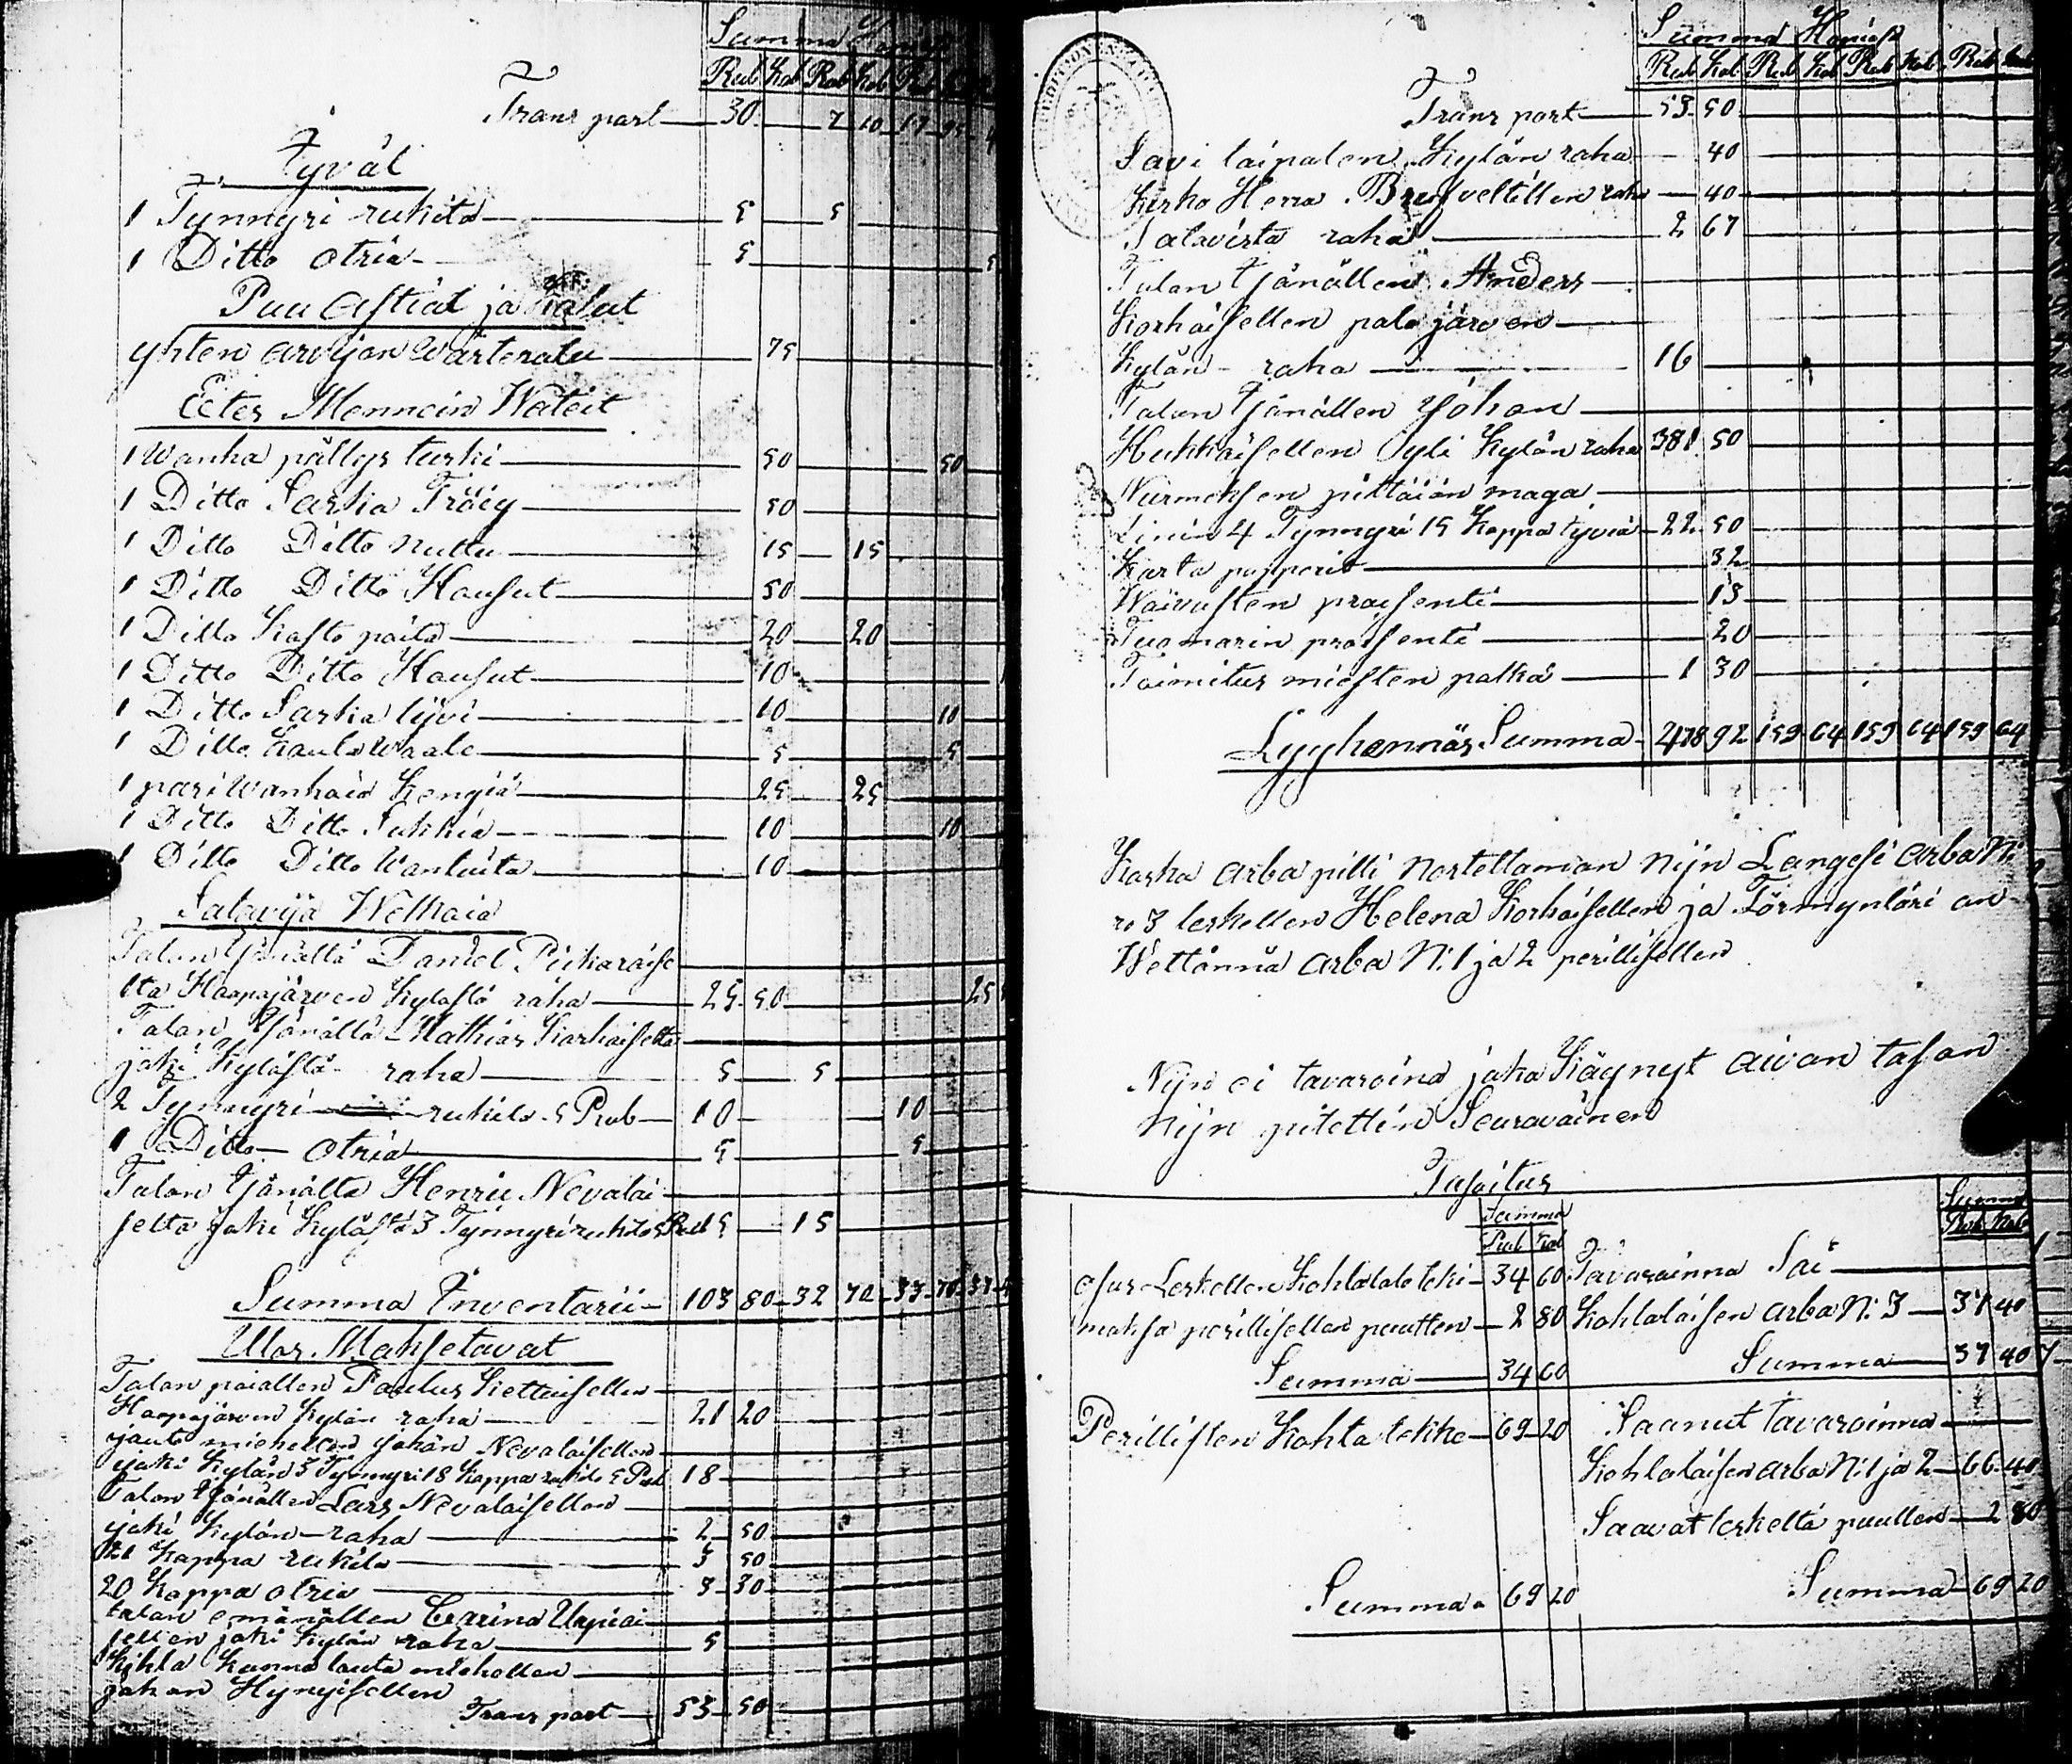 Summa
Rub Kob Rub Kob Rub
Transport 30 7 10 17 95
Jyvät
1 Tynnyri rukita 5 5
1 Ditto otria 5 5
Puu Astiat ja Kalut
yhten arvejan Wärteralu 75
Ectes Mennein Wateit
1 Wanha pällys turki 50 50
1 Ditto Sarka Tröiy 50
1 Ditto Ditto Nuttu 15 15
1 Ditto Ditto Housut 50
1 Ditto Kasto paita 20 20
1 Ditto Ditto Housut 10
1 Ditto Sarka lijvi 10 10
1 Ditto Kaula Waate 5 5
1 pari Wanhaia Kengiä 25 25
1 Ditto Ditto Sukkia 10 10
1 Ditto Ditto Wantuita 10
Satavija Welkaia
Talon Jsänältä Daniel Pitkäräise
ltä Haapajärven Kylästä raha 25 50 25
Talon Jsänältä Mathias Korhaiselta
joki Kylästä raha 5 5
2 Tynnyri rukita 5 Rub 10 10
1 Ditto otria 5 5
Talon Jsänältä Henric Nevalai
selta joki Kylästä 3 Tynnyri rukita 5 Rub 15
Summa Inventarii 103 80 32 70 33 70 37
Ulos Maksetavat
Talon Jsänällen Paulus Kettuisellen
Haapajärven Kylän raha 21 20
jauto miehellen Johan Nevalaisellen
joki Kylän 3 Tynnyri 18 Kappa rukita 5 Rub 18
Talon Jsänällen Lars Nevalaisellen
joki Kylän raha 2 50
21 Kappa rukita 3 50
20 Kappa otria 3 30
talon emänällen Carina Urpiai
sellen joki Kylän raha 5
Kihla Kunna lauta miehellen
Johan Hynyisellen
Transport 53 50
Summa Hopiast
Rub Kob Rub Kob Rub Kob Rub Kob
Transport 53 50
Savi taipalen Kylän raha 40
Kirko Herra Brusveltillen raha 40
Satavista raha 2 67
Talon Jsänällen Anders
Korhaisellen palo järven
Kylän raha 16
Talon Jsänällen Johan
Hukkaisellen Syli Kylän raha 381 50
Nurmeksen pittäiän maga
Linin 4 Tynnyri 15 Kappa jyviä 22 50
Karta papperit 32
Waivasten prosenti 13
Tuomarin prosenti 20
Toimitus miesten palka 1 30
Lyyhennäs Summa 478 92 159 64 159 64 159 64
Koska Arba pilli Nostettanian Nijn Langesi Arba N:
ro 3 leskellen Helena Korhaisellen ja Förmyntäri an
Wettänna Arba N: 1 ja 2 perillisellen
Nijn ei tavaroina jako Käynyt aivan tasan
Nijn pitettin Seuravainen
Tasoitus
Summa Summa
Rub Kob Rub Kob
osus Leskellen Kohtalole teki 34 60 Tavaroinna Sai
maksa perillisellen puutten 2 80 Kohtalaisen Arba N: 3 37 40
Summa 34 60 Summa 37 40
Perillisten Kohta tekke 69 20 Saanut tavaroinna
Kohtalaisen Arba N: 1 ja 2 66 40
Saavat leskeltä puutten 2 80
Summa 69 20 Summa 69 20